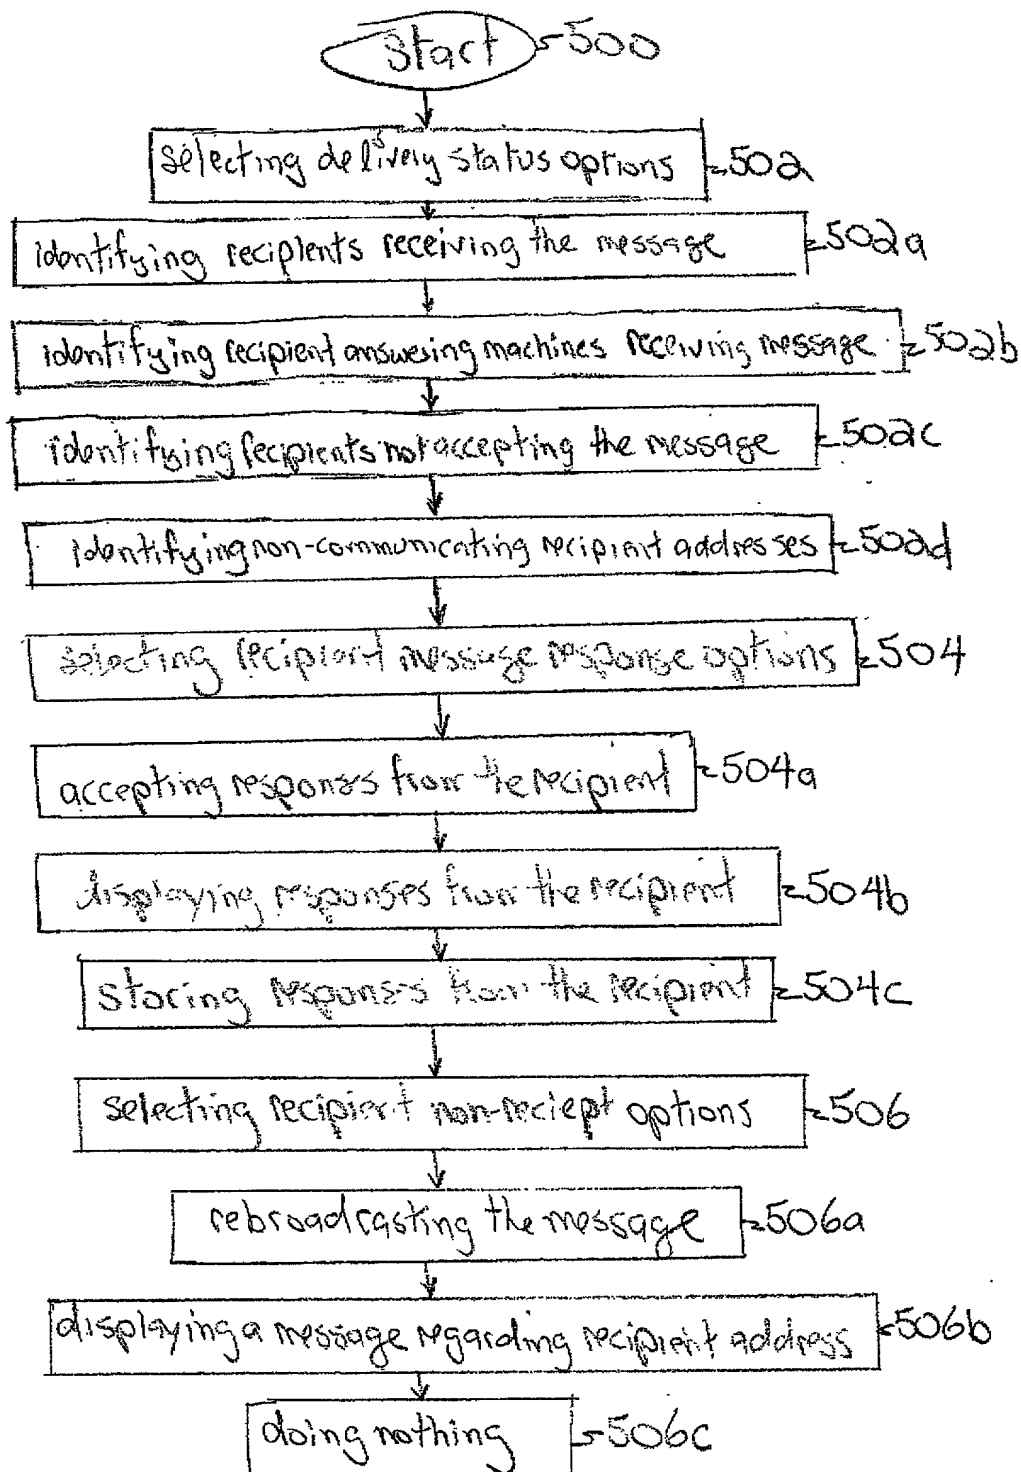 Start 500
selecting delivery status options 502
identifying recipients receiving the message 502a
identifying recipient answesing machines receiving message 502b
identifying recipients not accepting the message 502c
identifying non-communicating recipient addresses 502d
selecting recipient message response options 504
accepting responses from the recipient 504a
displaying responses from the recipient 504b
storing responses from the recipient 504c
selecting recipient non-reciept options 506
rebroadcasting the message 506a
displaying a message regarding recipient address 506b
doing nothing 506c